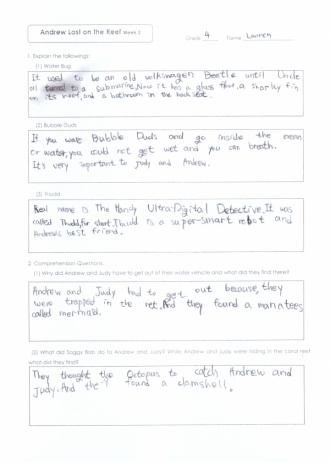 Andrew Lost on the Reef Week 2
Grade 4 Name Lauren
1. Explain the followings:
(1) Water Bug:
It used to be an old volkswagen Beetle until Uncle
Al turned to a submarine. Now it has a glass floor, a sharky fin
on its roof, and a bathroom in the back seat.
(2) Bubble Duds
If you wear Bubble Duds and go inside the ocean
or water, you could not get wet and you can breath.
It's very important to Judy and Andrew.
(3) Thudd
Real name is The Handy Ultra-Digital Detective. It was
called Thudd, for short. Thudd is a super-smart robot and
Andrew's best friend.
2. Comprehension Questions.
(1) Why did Andrew and Judy have to get out of their water vehicle and what did they find there?
Andrew and Judy had to get out because, they
were trapped in the net. And they found a manatees
called mermaid.
(2) What did Soggy Bob do to Andrew and Judy? While Andrew and Judy were hiding in the coral reef
what did they find?
They thought the Octopus to catch Andrew and
Judy. And they found a clamshell.